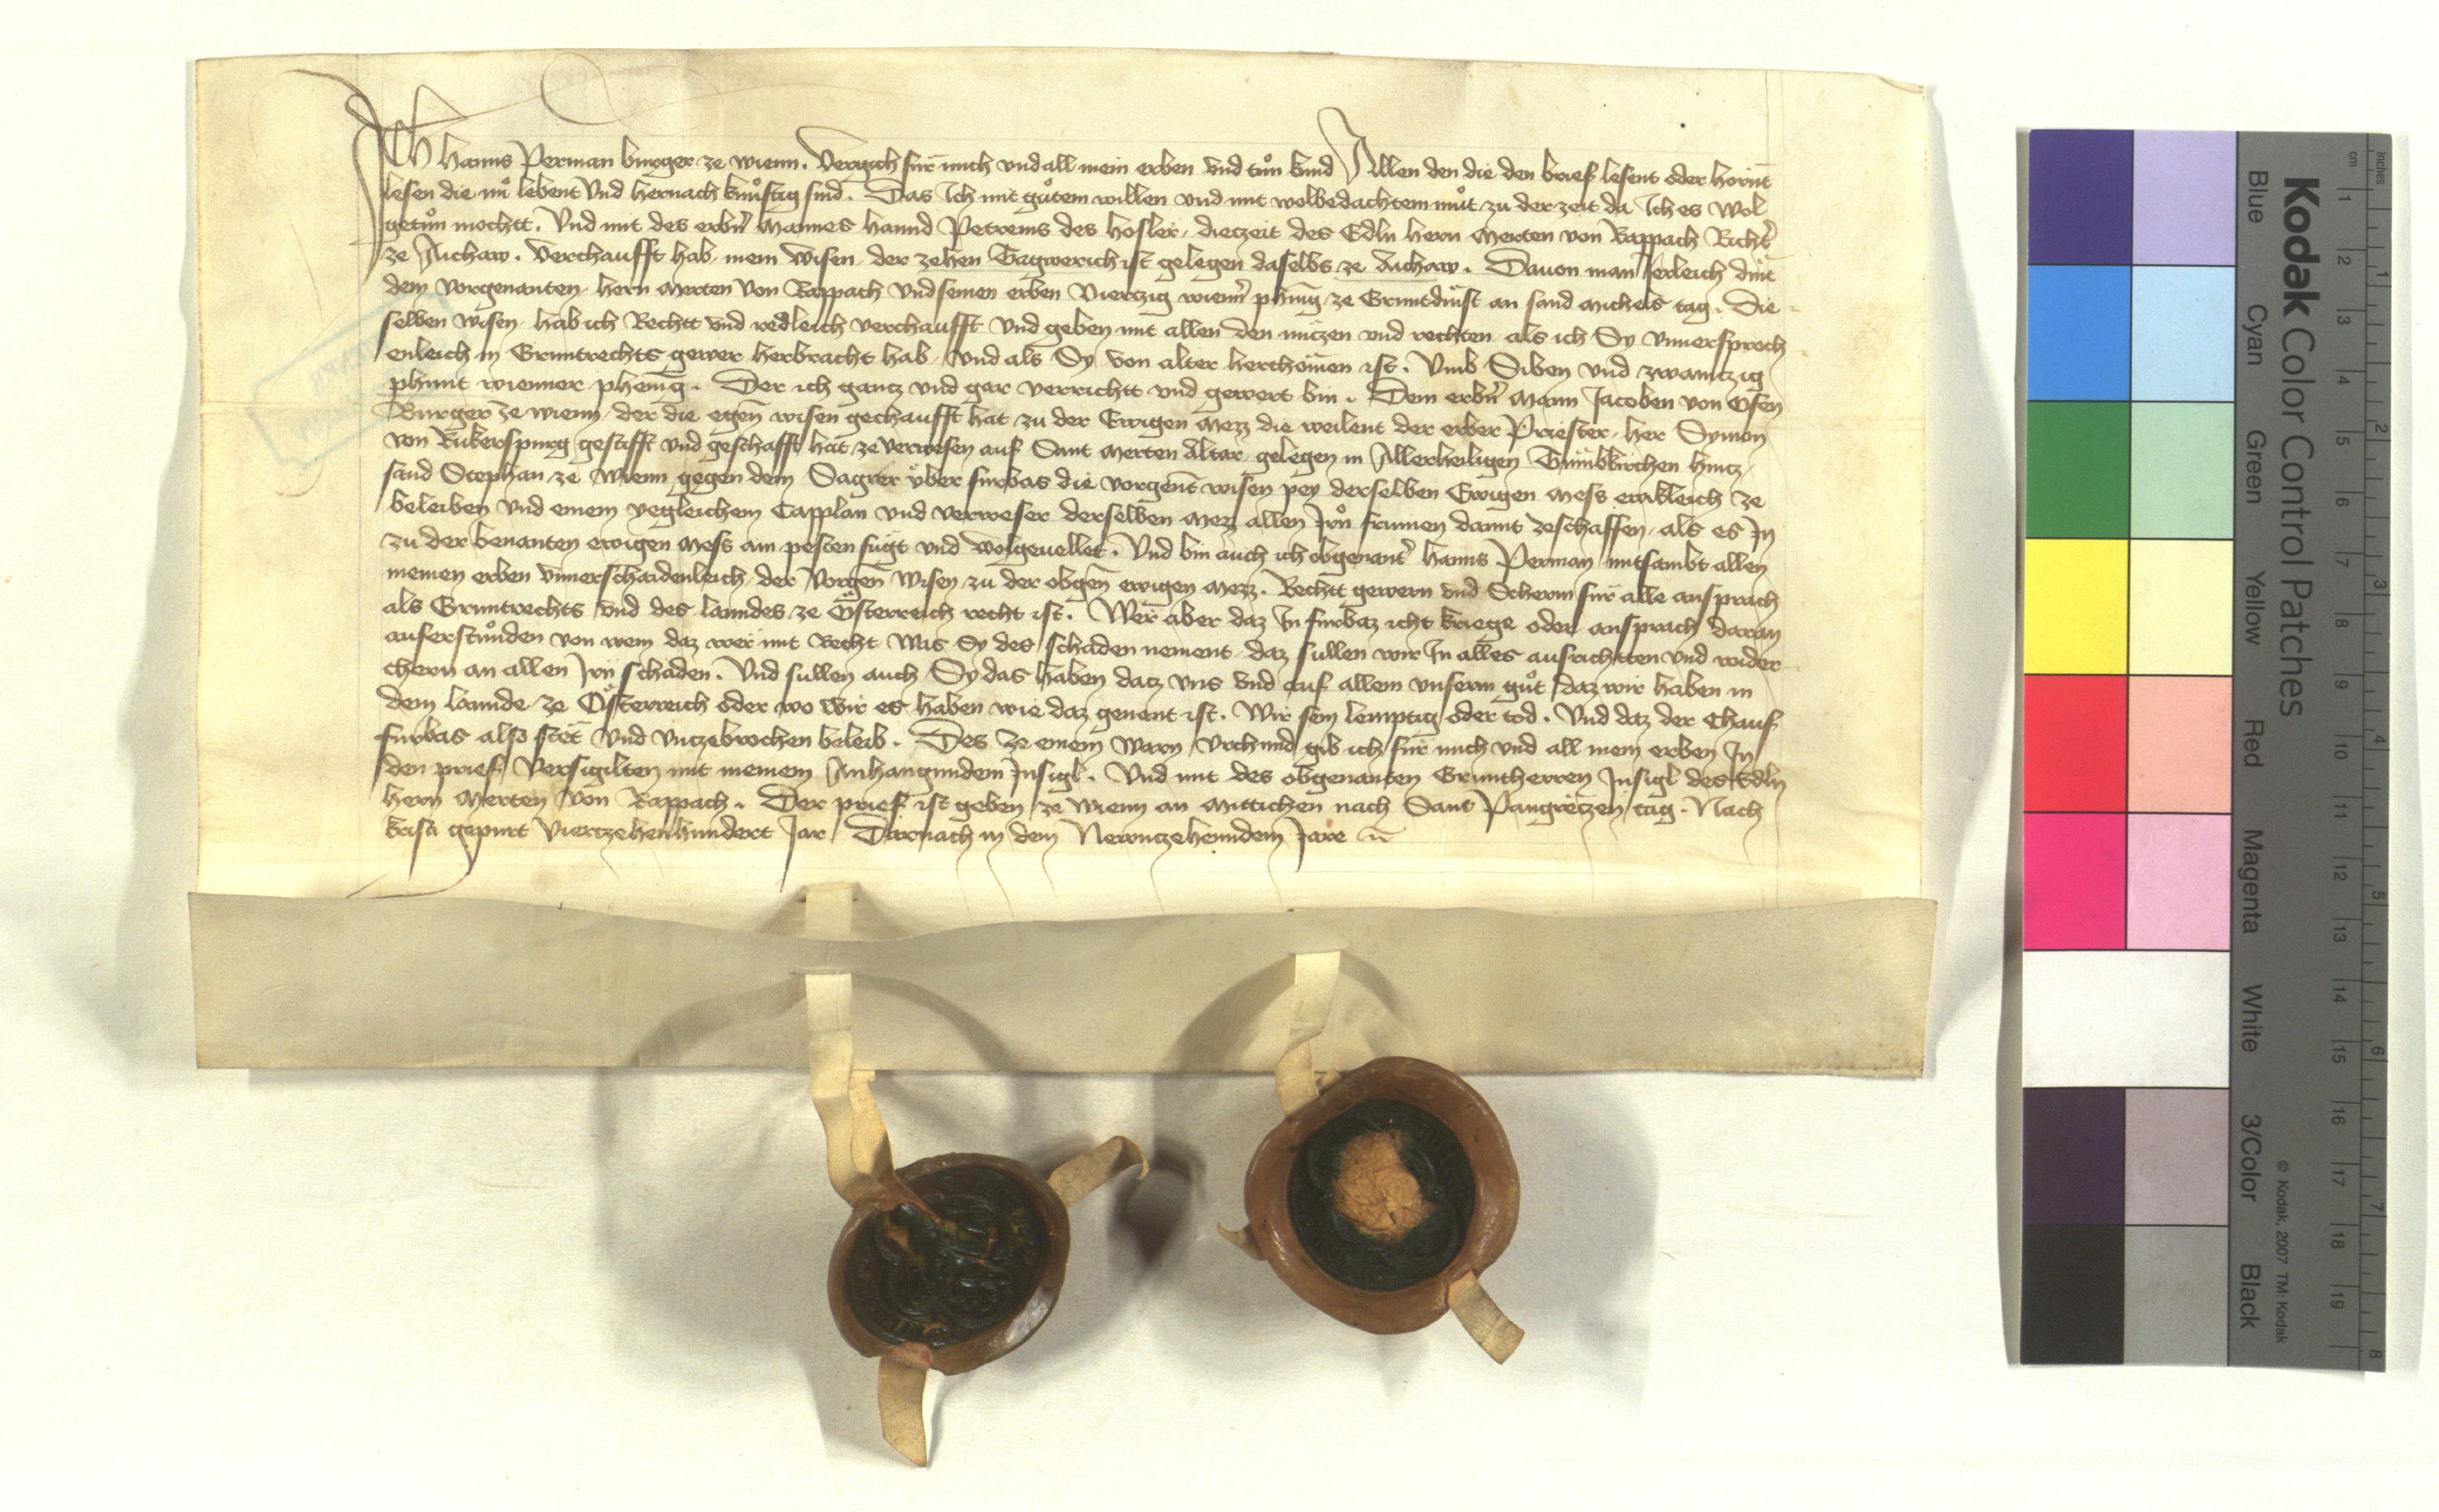 Ich Hanns Perman burger ze wienn. Vergich für mich vnd all mein erben vnd tůn kund Allen den die den brief lesent oder hornt̄
lesen die nů lebent Vnd hernach kůnftig sind. Das Ich mit gůtem willen vnd mit wolbedachtem můt zu der zeit da Ich es wol
getůn mochtt. Vnd mit des erbn̄ Mannes hannd Petreins des hosler, diezeit des Edln hern Merten von Rappach Richt̄
ze Aichaw. Verchaufft hab, mein wisen der zehen Tagwerich ist gelegen daselbs ze Aichaw. Dauon man Ierleich dint
dem vorgenanten hern Merten von Rappach vnd seinen erben Viertzig wienn̄ phēnig ze Gruntdinst an sand Michels tag. Die
selben wisen hab ich Rechtt vnd redleich verchaufft vnd geben mit allen den nützen vnd rechten als ich Sy vnuersproch
enleich in Gruntrechts gewer herbracht hab, Vnd als Sy von alter herchōmen ist. Vmb Siben vnd zwaintzig
phunt wienner phenīg. Der ich gantz vnd gar verrichtt vnd gewert bin. Dem erbn̄ Mann Jacoben von Ofen
Burger ze wienn, der die egen̄ wisen gechaufft hat zu der Ewigen Mezz die weilent der erber Priester, her Symon
von Rukerspurg gestifft vnd geschafft hat ze verwesen auf Sant Merten Altar, gelegen in Allerheiligen Tumbkirchen hintz
sand Stephan ze Wienn gegen dem Sagrer vͤber furbas die vorgent̄ wisen pey derselben Ewigen Mess ewikleich ze
beleiben vnd einem yegleichem Capplan vnd verweser derselben Mezz allen Irn̄ frumen damit zeschaffen, als es In
zu der benanten ewigen Mess am pesten fügt vnd wolgeuellet. Vnd bin auch ich obgenant̄ Hanns Perman mitsambt allen
meinen erben vnuerschaidenleich, der Vorgen̄ wisen zu der obgen̄ ewigen Mezz. Rechtt gewern vnd Scherm für alle ansprach
als Gruntrechts vnd des lanndes ze Österreich recht ist. Wer aber daz In fürbaz icht kriege oder ansprach daran
auferstůnden von wem daz wer mit Recht Was Sy des schaden nement daz sullen wir In alles ausrichtten vnd wider
chern an allen Irn̄ schaden. Vnd sullen auch Sy das haben datz vns vnd auf allem vnserm gůt daz wir haben in
dem lannde ze Österreich oder wo wir es haben wie daz genant ist. Wir sein lemptig oder tod. Vnd daz der Chauf
furbas also stet̄ Vnd vntzebrochen beleib. Des ze einem warn Vrchund gib ich für mich vnd all mein erben In
den prief Versigilten mit meinem Anhangundem Insigl. Vnd mit des obgenanten Gruntherren Insigl des Edln
hern Merten von Rappach. Der prief ist geben ze Wienn an Mittichen nach Sant Pangretzen tag. Nach
kristi gepurt Viertzehenhundert Jar Darnach in dem Newntzehenndem Jare
Kodak Color Control Patches
Blue Cyan Green Yellow Red Magenta White 3/Color Black
© Kodak, 2007 TM: Kodak
cm 1 2 3 4 5 6 7 8 9 10 11 12 13 14 15 16 17 18 19
inches 1 2 3 4 5 6 7 8